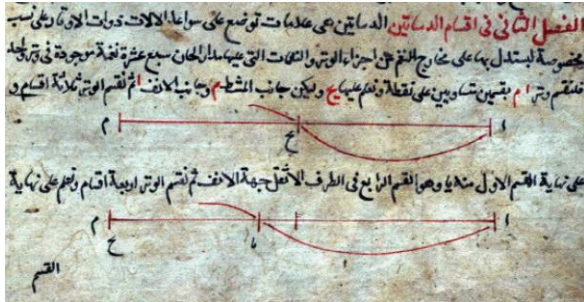 الفصل الثاني في اقسام الدساتين الدساتين هي علامات توضع على سواعد الالات ذوات الاوتار على نسب
مخصوصة ليستدل بها على مخارج النغم من اجزاء الوتر والنغمات التي عليها مدار الالحان سبع عشرة نغمة موجودة في وتر واحد
فلنقسم وتر ا م بقسمين متساويين على نقطة ونعلم عليها يح وليكن جانب المشط م وجانب الانف ا ثم نقسم الوتر ثلاثة اقسام و
ا يح م
على نهاية القسم الاول منه يا وهو القسم الرابع في الطرف الاثقل جهة الانف ثم نقسم الوتر اربعة اقسام ونعلم على نهاية
ا يا يح م
القسم